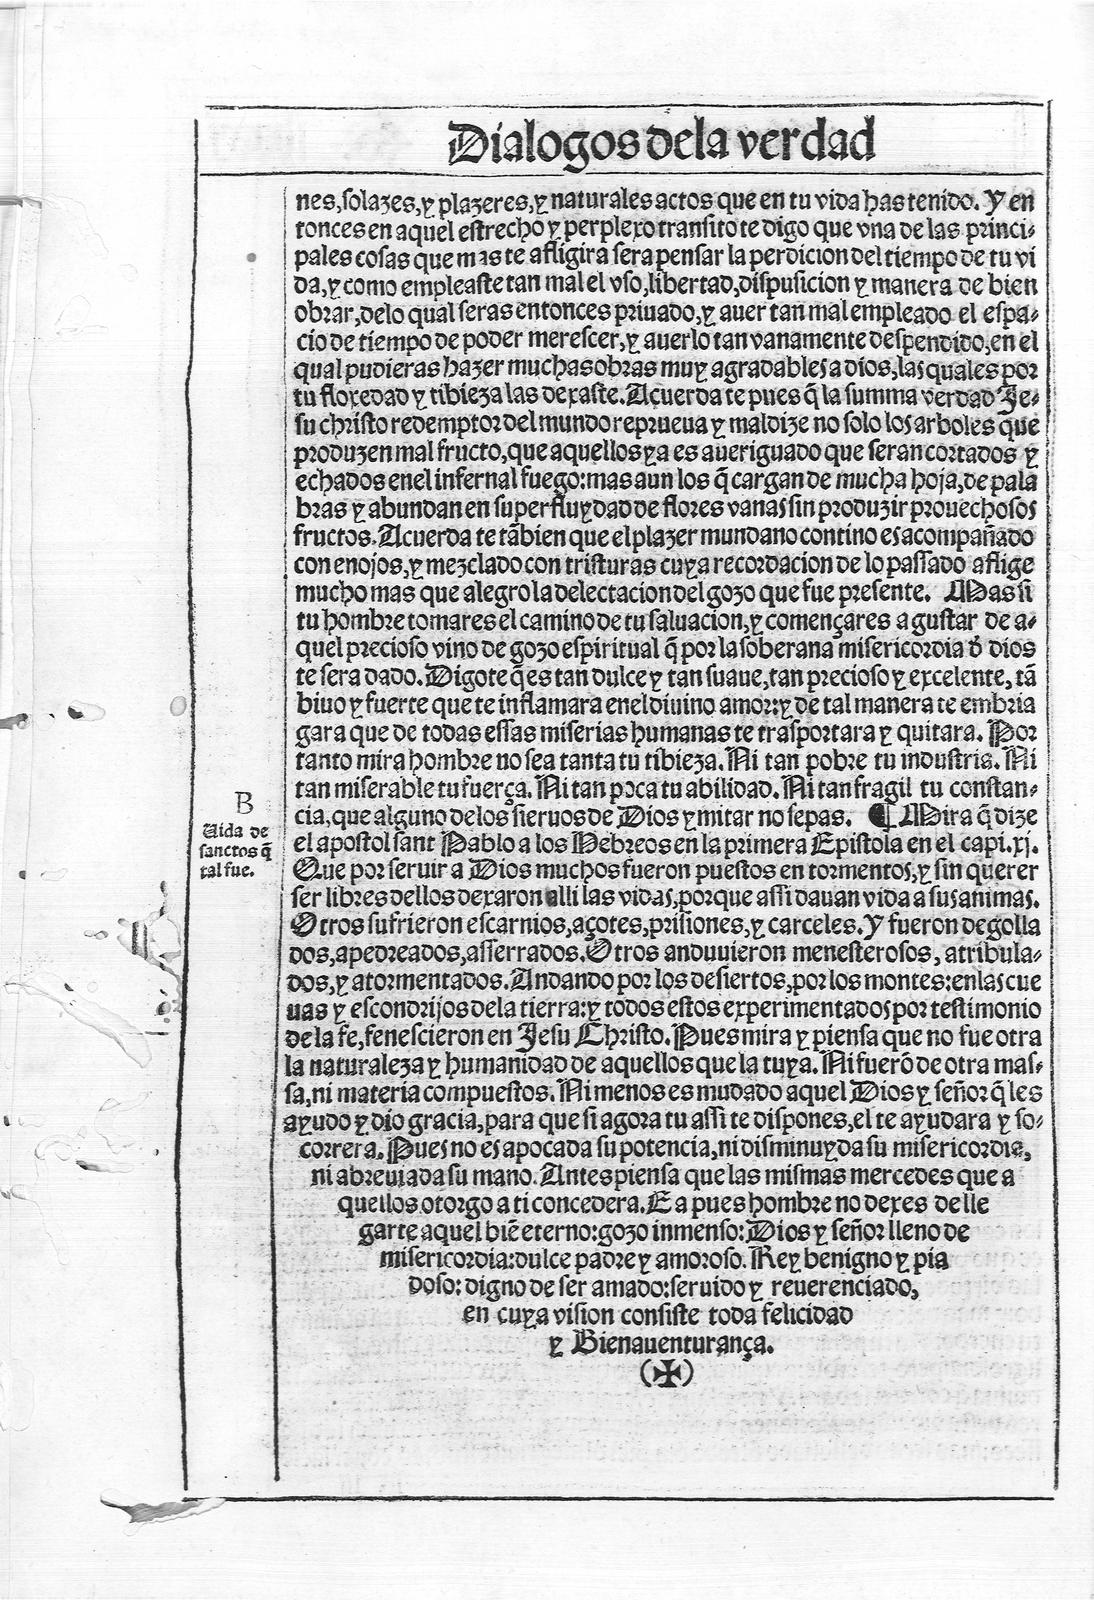 Dialogos dela verdad
nes, solazes, y plazeres, y naturales actos que en tu vida has tenido. Y en
tonces en aquel estrecho y perplexo transito te digo que vna de las princi-
pales cosas que mas te afligira sera pensar la perdicion del tiempo de tu vi
da, y como empleaste tan mal el vso, libertad, dispusicion y manera de bien
obrar, delo qual seras entonces priuado, y auer tan mal empleado el espa-
cio de tiempo de poder merescer, y auerlo tan vanamente despendido, en el
qual pudieras hazer muchas obras muy agradables a dios, las quales por
tu floxedad y tibieza las dexaste. Acuerda te pues q̃ la summa verdad Je-
su christo redemptor del mundo reprueua y maldize no solo los arboles que
produzen mal fructo, que aquellos ya es aueriguado que seran cortados y
echados enel infernal fuego: mas aun los q̃ cargan de mucha hoja, de pala
bras y abundan en superfluydad de flores vanas sin produzir prouechosos
fructos. Acuerda te tãbien que el plazer mundano contino es acompañado
con enojos, y mezclado con tristuras cuya recordacion de lo passado aflige
mucho mas que alegro la delectacion del gozo que fue presente. Mas si
tu hombre tomares el camino de tu saluacion, y començares a gustar de a-
quel precioso vino de gozo espiritual q̃ por la soberana misericordia đ dios
te sera dado. Digote q̃ es tan dulce y tan suaue, tan precioso y excelente, tã
biuo y fuerte que te inflamara enel diuino amor: y de tal manera te embria
gara que de todas essas miserias humanas te trasportara y quitara. Por
tanto mira hombre no sea tanta tu tibieza. Ni tan pobre tu industria. Ni
tan miserable tu fuerça. Ni tan poca tu abilidad. Ni tan fragil tu constan-
cia, que alguno delos sieruos de Dios ymitar no sepas. ¶ Mira q̃ dize
B
Uida de
sanctos q̃
tal fue.
el apostol sant Pablo a los Hebreos en la primera Epistola en el capi. xj.
Que por seruir a Dios muchos fueron puestos en tormentos, y sin querer
ser libres dellos dexaron alli las vidas, porque assi dauan vida a sus animas.
Otros sufrieron escarnios, açotes, prisiones, y carceles. Y fueron degolla
dos, apedreados, asserrados. Otros anduuieron menesterosos, atribula-
dos, y atormentados. Andando por los desiertos, por los montes: en las cue
uas y escondrijos dela tierra: y todos estos experimentados por testimonio
de la fe, fenescieron en Jesu Christo. Pues mira y piensa que no fue otra
la naturaleza y humanidad de aquellos que la tuya. Ni fuerõ de otra mas-
sa, ni materia compuestos. Ni menos es mudado aquel Dios y señor q̃ les
ayudo y dio gracia, para que si agora tu assi te dispones, el te ayudara y so-
correra. Pues no es apocada su potencia, ni disminuyda su misericordia,
ni abreuiada su mano. Antes piensa que las mismas mercedes que a
quellos otorgo a ti concedera. Ea pues hombre no dexes de lle
garte aquel biẽ eterno: gozo inmenso: Dios y señor lleno de
misericordia: dulce padre y amoroso. Rey benigno y pia
doso: digno de ser amado: seruido y reuerenciado,
en cuya vision consiste toda felicidad
y Bienauenturança.
(✠)